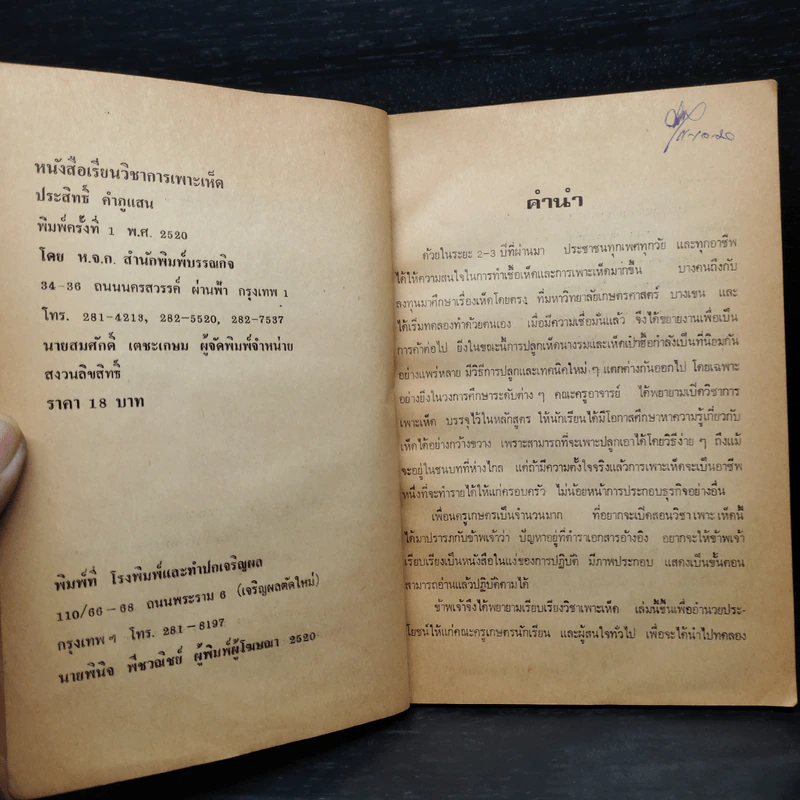 หนังสือเรียนวิชาการเพาะเห็ด
ประสิทธิ์ คำภูแสน
พิมพ์ครั้งที่ 1 พ.ศ. 2520
โดย ห.จ.ก. สำนักพิมพ์บรรณกิจ
34-36 ถนนนครสวรรค์ ผ่านฟ้า กรุงเทพ 1
โทร. 281-4213, 282-5520, 282-7537
นายสมศักดิ์ เตชะเกษม ผู้จัดพิมพ์จำหน่าย
สงวนลิขสิทธิ์
ราคา 18 บาท
พิมพ์ที่ โรงพิมพ์และทำปกเจริญผล
110/66-68 ถนนพระราม 6 (เจริญผลตัดใหม่)
กรุงเทพฯ โทร. 281-8197
นายพินิจ พืชวณิชย์ ผู้พิมพ์ผู้โฆษณา 2520
คำนำ
ด้วยในระยะ 2-3 ปีที่ผ่านมา ประชาชนทุกเพศทุกวัย และทุกอาชีพ
ได้ให้ความสนใจในการทำเชื้อเห็ดและการเพาะเห็ดมากขึ้น บางคนถึงกับ
ลงทุนมาศึกษาเรื่องเห็ดโดยตรง ที่มหาวิทยาลัยเกษตรศาสตร์ บางเขน และ
ได้เริ่มทดลองทำด้วยตนเอง เมื่อมีความเชื่อมั่นแล้ว จึงได้ขยายงานเพื่อเป็น
การค้าต่อไป ยิ่งในขณะนี้การปลูกเห็ดนางรมและเห็ดเป๋าฮื้อกำลังเป็นที่นิยมกัน
อย่างแพร่หลาย มีวิธีการปลูกและเทคนิคใหม่ ๆ แตกต่างกันออกไป โดยเฉพาะ
อย่างยิ่งในวงการศึกษาระดับต่าง ๆ คณะครูอาจารย์ ได้พยายามเปิดวิชาการ
เพาะเห็ด บรรจุไว้ในหลักสูตร ให้นักเรียนได้มีโอกาสศึกษาหาความรู้เกี่ยวกับ
เห็ดได้อย่างกว้างขวาง เพราะสามารถที่จะเพาะปลูกเอาได้โดยวิธีง่าย ๆ ถึงแม้
จะอยู่ในชนบทที่ห่างไกล แต่ถ้ามีความตั้งใจจริงแล้วการเพาะเห็ดจะเป็นอาชีพ
หนึ่งที่จะทำรายได้ให้แก่ครอบครัว ไม่น้อยหน้าการประกอบธุรกิจอย่างอื่น
เพื่อนครูเกษตรเป็นจำนวนมาก ที่อยากจะเปิดสอนวิชาเพาะเห็ดนี้
ได้มาปรารภกับข้าพเจ้าว่า ปัญหาอยู่ที่ตำราเอกสารอ้างอิง อยากจะให้ข้าพเจ้า
เรียบเรียงเป็นหนังสือในแง่ของการปฏิบัติ มีภาพประกอบ แสดงเป็นขั้นตอน
สามารถอ่านแล้วปฏิบัติตามได้
ข้าพเจ้าจึงได้พยายามเรียบเรียงวิชาเพาะเห็ด เล่มนี้ขึ้นเพื่ออำนวยประ-
โยชน์ให้แก่คณะครูเกษตรนักเรียน และผู้สนใจทั่วไป เพื่อจะได้นำไปทดลอง